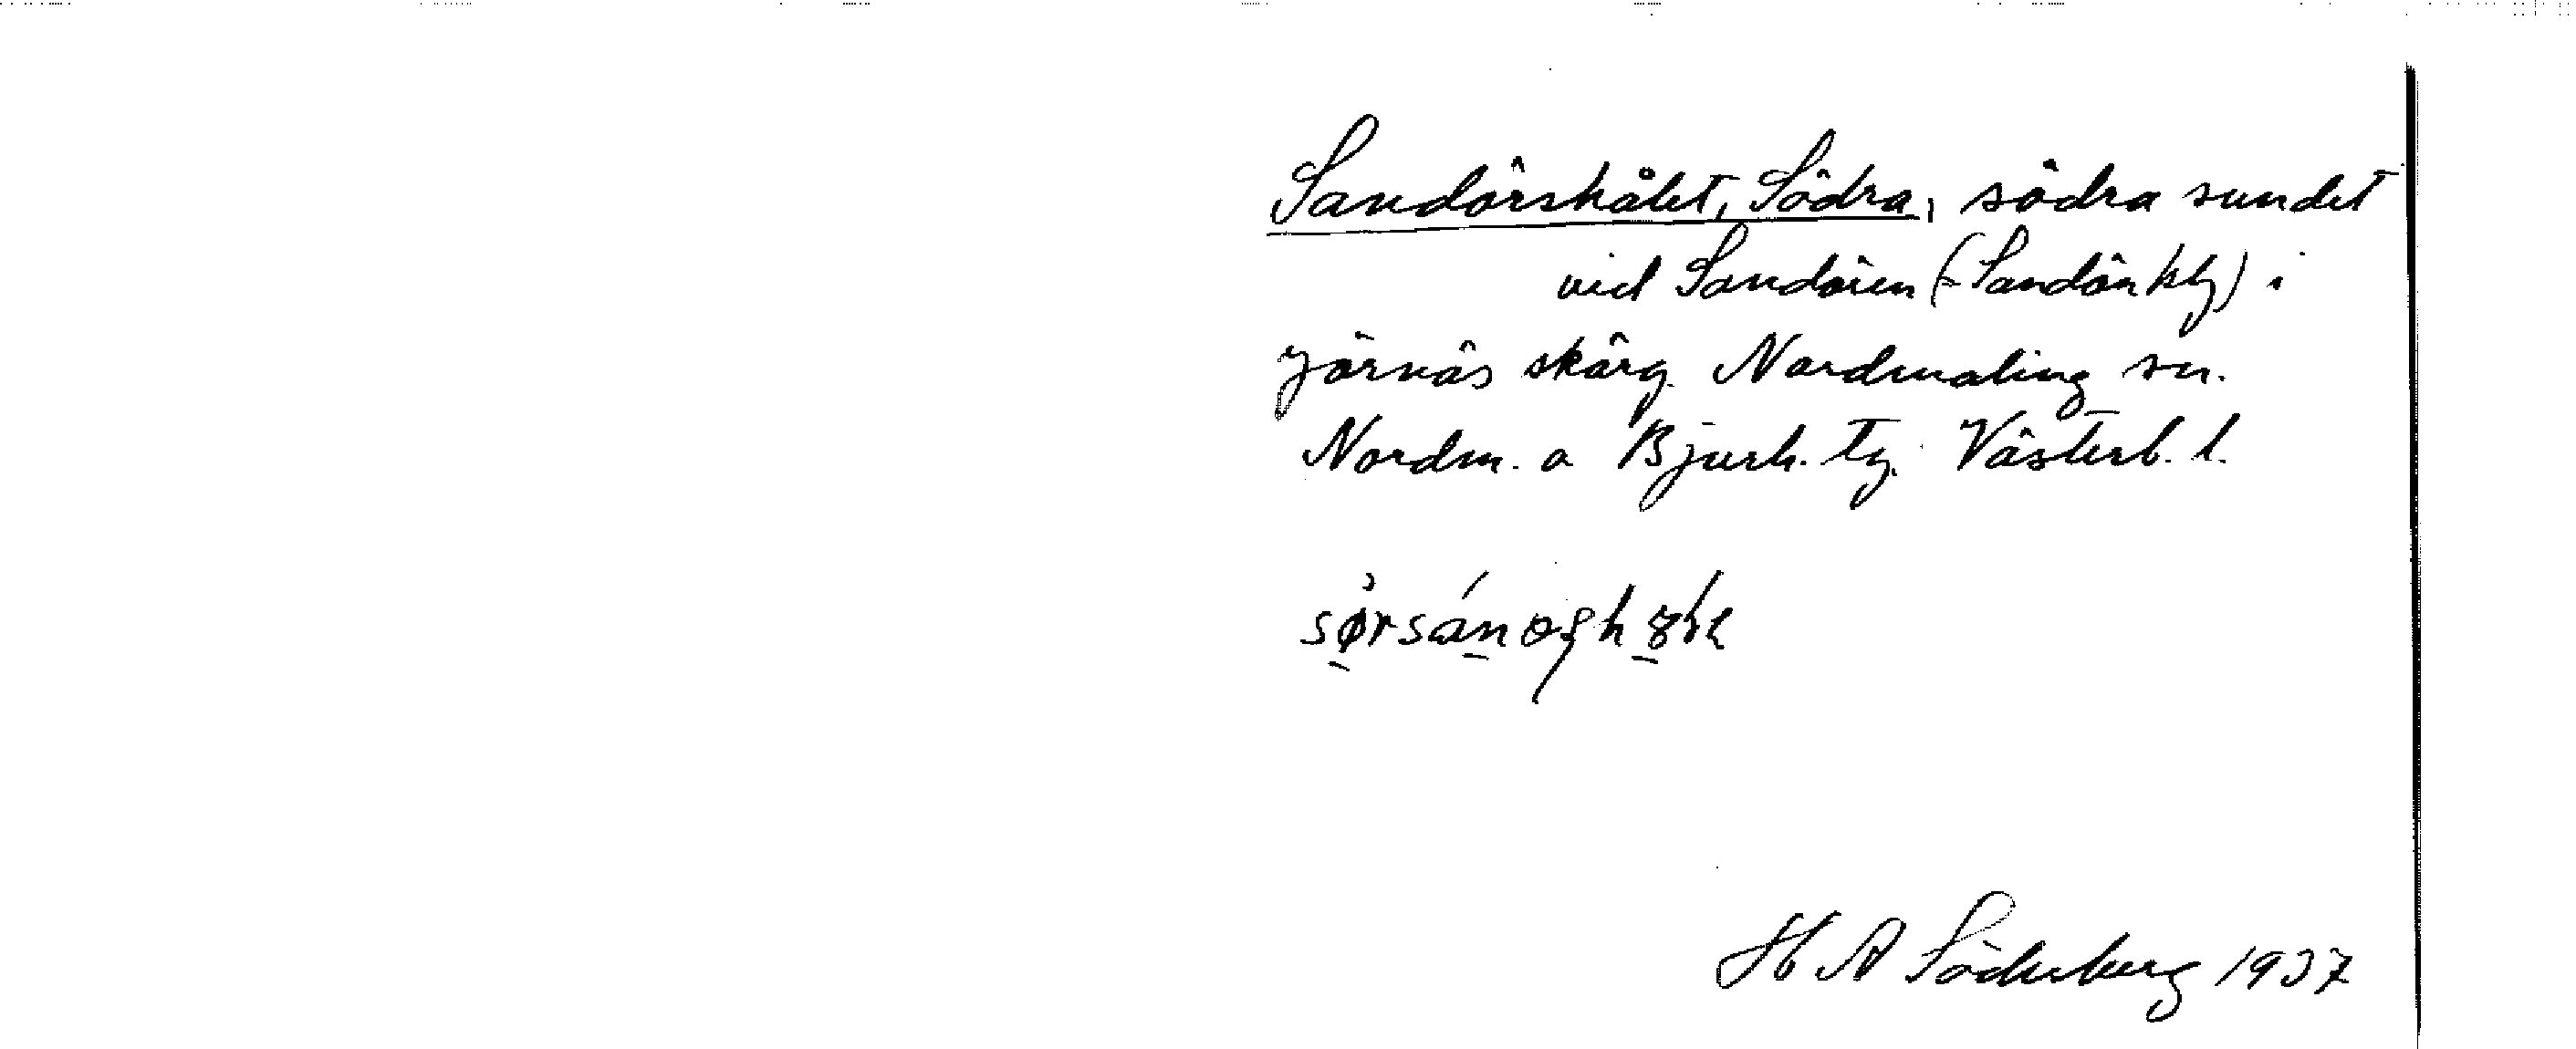 Sandörshålet, Södra, södra sundet
vid Sandören (-Sandön kbg) i
Järnäs skärg. Nordmaling sn.
Nordm. o Bjurh. tg. Västerb. l.
H A Söderberg 1937